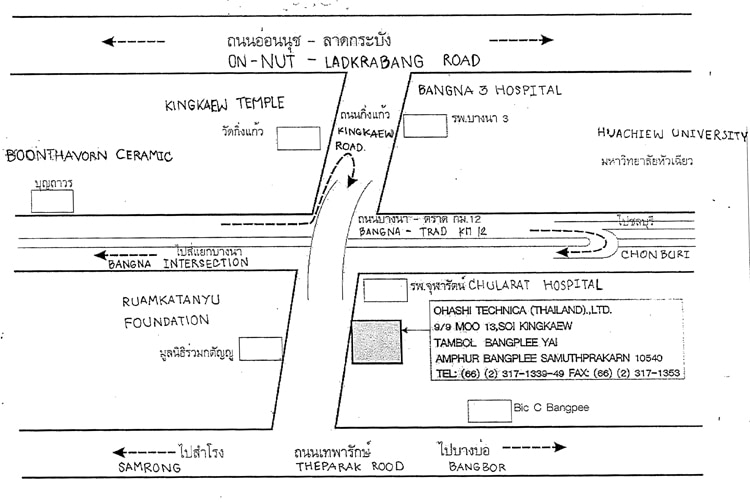 ถนนอ่อนนุช - ลาดกระบัง
ON-NUT - LADKRABANG ROAD
KINGKAEW TEMPLE
วัดกิ่งแก้ว
ถนนกิ่งแก้ว
KINGKAEW
ROAD.
BANGNA 3 HOSPITAL
รพ.บางนา 3
HUACHIEW UNIVERSITY
มหาวิทยาลัยหัวเฉียว
BOONTHAVORN CERAMIC
บุญถาวร
ถนนบางนา - ตราด กม.12
BANGNA - TRAD KM 12
ไปชลบุรี
CHONBURI
ไปสี่แยกบางนา
BANGNA INTERSECTION
รพ.จุฬารัตน์ CHULARAT HOSPITAL
RUAMKATANYU
FOUNDATION
มูลนิธิร่วมกตัญญู
OHASHI TECHNICA (THAILAND).,LTD.
9/9 MOO 13,SOI KINGKAEW
TAMBOL BANGPLEE YAI
AMPHUR BANGPLEE SAMUTHPRAKARN 10540
TEL: (66) (2) 317-1339-49 FAX: (66) (2) 317-1353
Bic C Bangpee
ไปสำโรง
SAMRONG
ถนนเทพารักษ์
THEPARAK ROOD
ไปบางบ่อ
BANGBOR